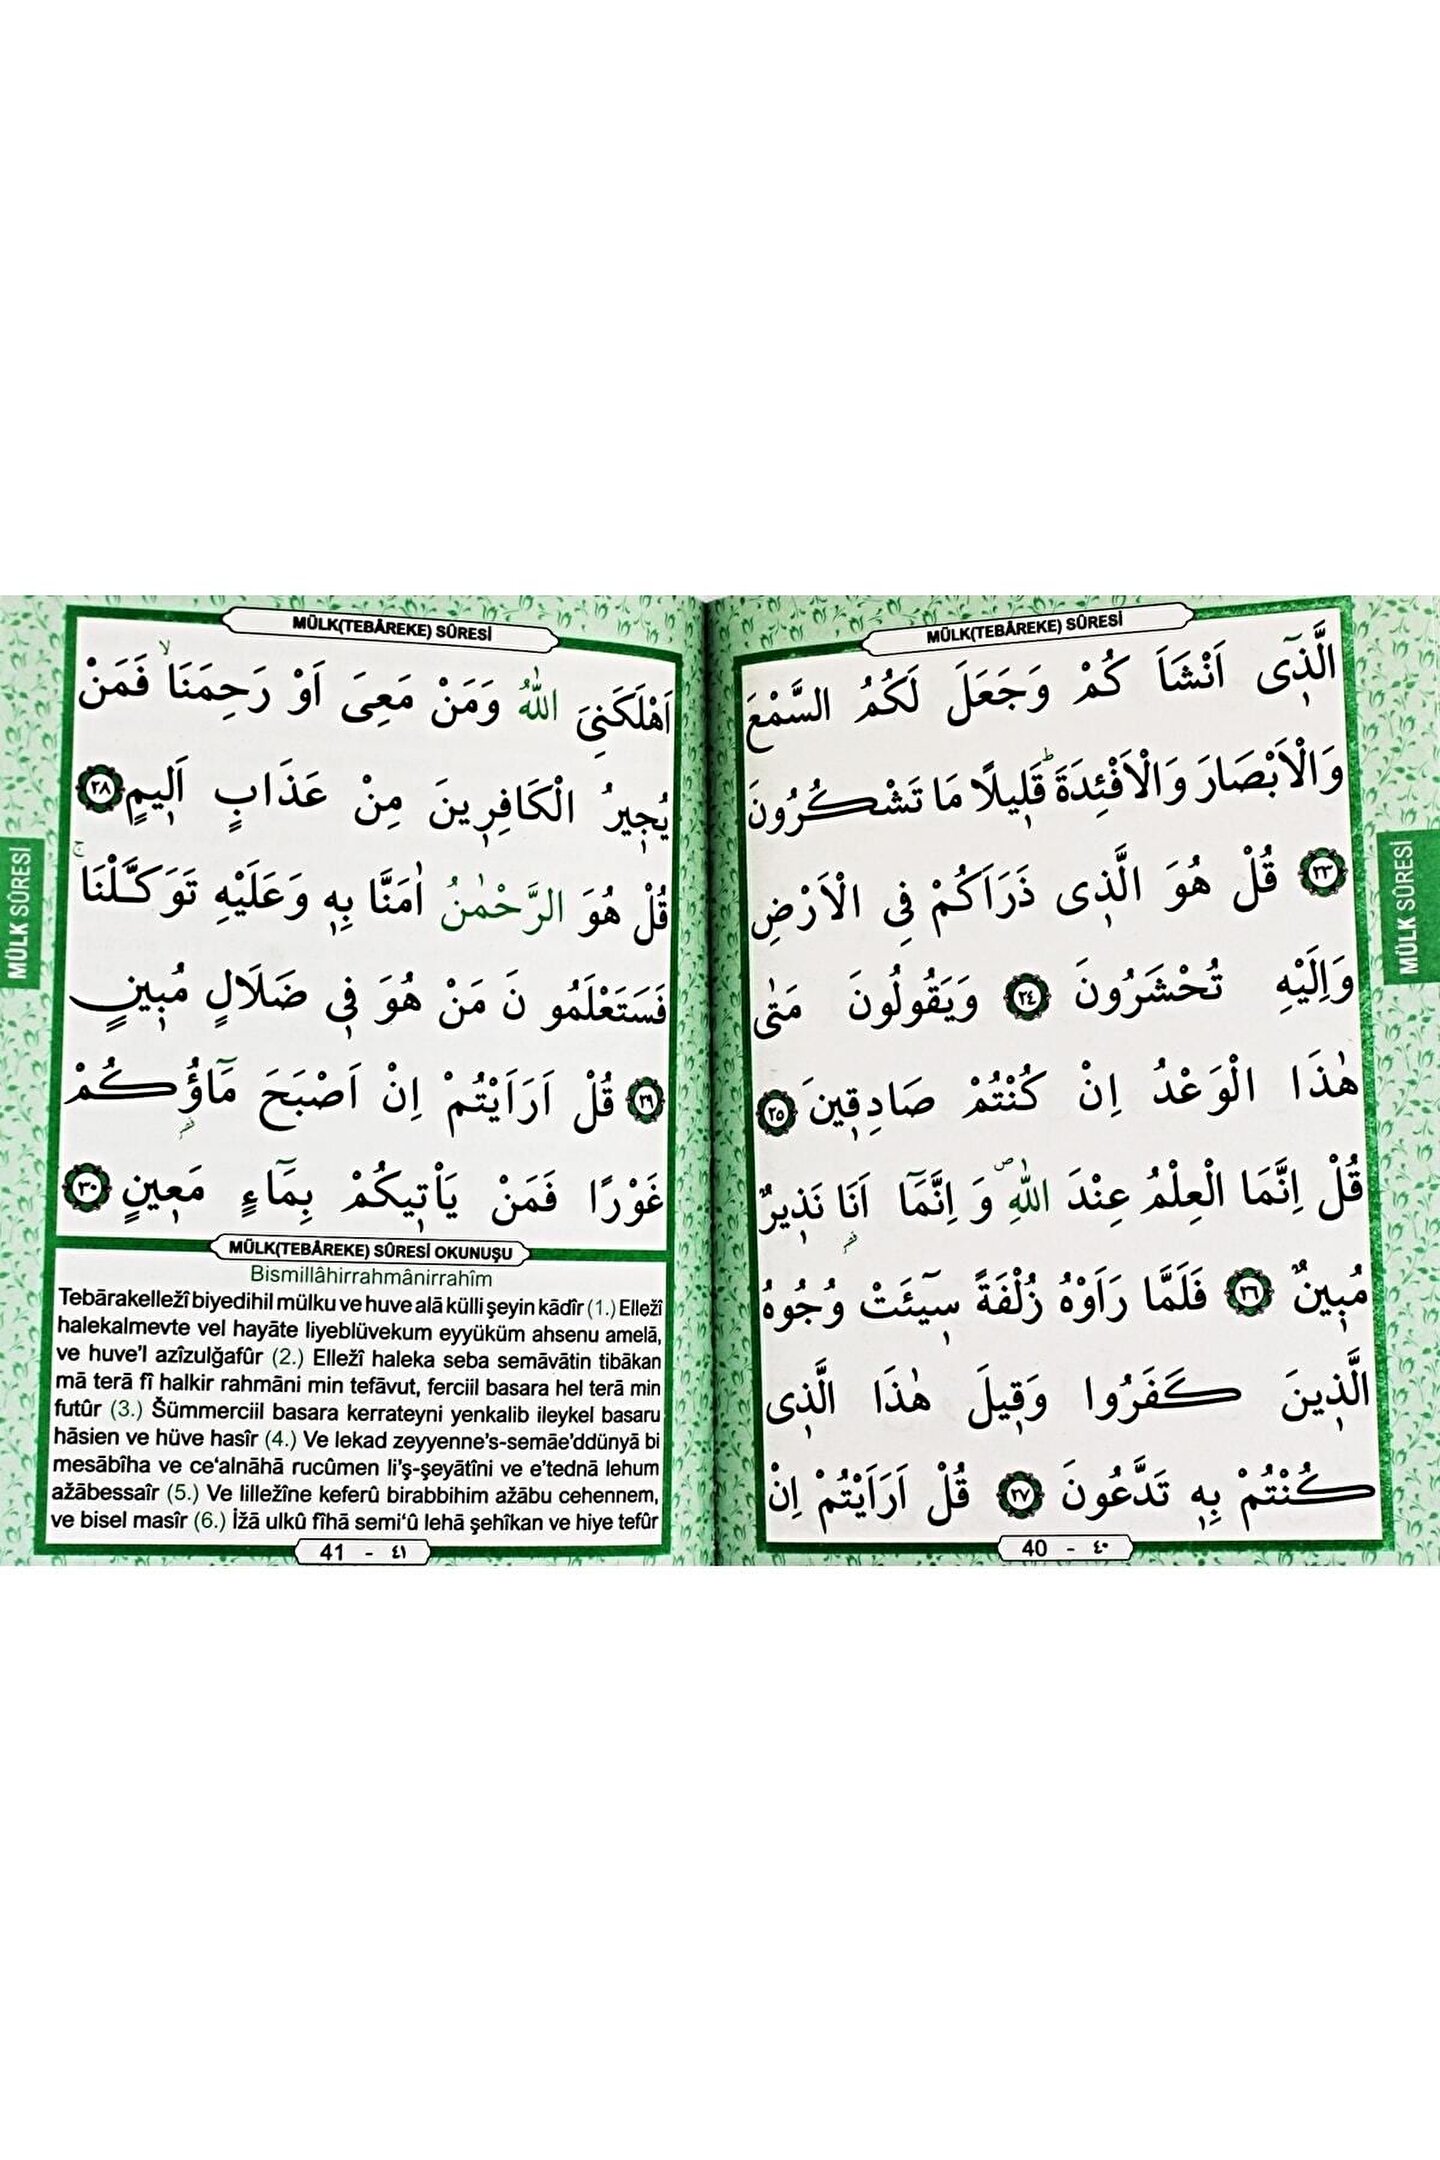 MÜLK(TEBÂREKE) SÛRESİ
الَّذِٓى اَنْشَاَ كُمْ وَجَعَلَ لَكُمُ السَّمْعَ
وَالْاَبْصَارَ وَالْاَفْئِدَةَۜ قَلِيلًا مَا تَشْكُرُونَ
﴿٢٣﴾ قُلْ هُوَ الَّذِى ذَرَاَكُمْ فِى الْاَرْضِ
وَاِلَيْهِ تُحْشَرُونَ ﴿٢٤﴾ وَيَقُولُونَ مَتٰى
هٰذَا الْوَعْدُ اِنْ كُنْتُمْ صَادِقِينَ ﴿٢٥﴾
قُلْ اِنَّمَا الْعِلْمُ عِنْدَ اللّٰهِۖ وَ اِنَّمَٓا اَنَا۬ نَذِيرٌ
مُبِينٌ ﴿٢٦﴾ فَلَمَّا رَاَوْهُ زُلْفَةً سِٓيئَتْ وُجُوهُ
الَّذِينَ كَفَرُوا وَقِيلَ هٰذَا الَّذِى
كُنْتُمْ بِهِ تَدَّعُونَ ﴿٢٧﴾ قُلْ اَرَاَيْتُمْ اِنْ
40 - ٤٠
MÜLK SÛRESİ
MÜLK(TEBÂREKE) SÛRESİ
اَهْلَكَنِىَ اللّٰهُ وَمَنْ مَعِىَ اَوْ رَحِمَنَاۙ فَمَنْ
يُجِيرُ الْكَافِرِينَ مِنْ عَذَابٍ اَلِيمٍ ﴿٢٨﴾
قُلْ هُوَ الرَّحْمٰنُ اٰمَنَّا بِهِ وَعَلَيْهِ تَوَكَّلْنَاۚ
فَسَتَعْلَمُو نَ مَنْ هُوَ فِى ضَلَالٍ مُبِينٍ
﴿٢٩﴾ قُلْ اَرَاَيْتُمْ اِنْ اَصْبَحَ مَٓاؤُ۬كُمْ
غَوْرًا فَمَنْ يَاْتِيكُمْ بِمَٓاءٍ مَعِينٍ ﴿٣٠﴾
MÜLK(TEBÂREKE) SÛRESİ OKUNUŞU
Bismillâhirrahmânirrahîm
Tebārakelležî biyedihil mülku ve huve alā külli şeyin kādîr (1.) Elležî
halekalmevte vel hayāte liyeblüvekum eyyüküm ahsenu amelā,
ve huve'l azîzulğafûr (2.) Elležî haleka seba semāvātin tibākan
mā terā fî halkir rahmāni min tefāvut, ferciil basara hel terā min
futûr (3.) Šümmerciil basara kerrateyni yenkalib ileykel basaru
hāsien ve hüve hasîr (4.) Ve lekad zeyyenne's-semāe'ddünyā bi
mesābîha ve ce‘alnāhā rucûmen li'ş-şeyātîni ve e'tednā lehum
ažābessaîr (5.) Ve lilležîne keferû birabbihim ažābu cehennem,
ve bisel masîr (6.) İžā ulkû fîhā semi‘û lehā şehîkan ve hiye tefûr
41 - ٤١
MÜLK SÛRESİ